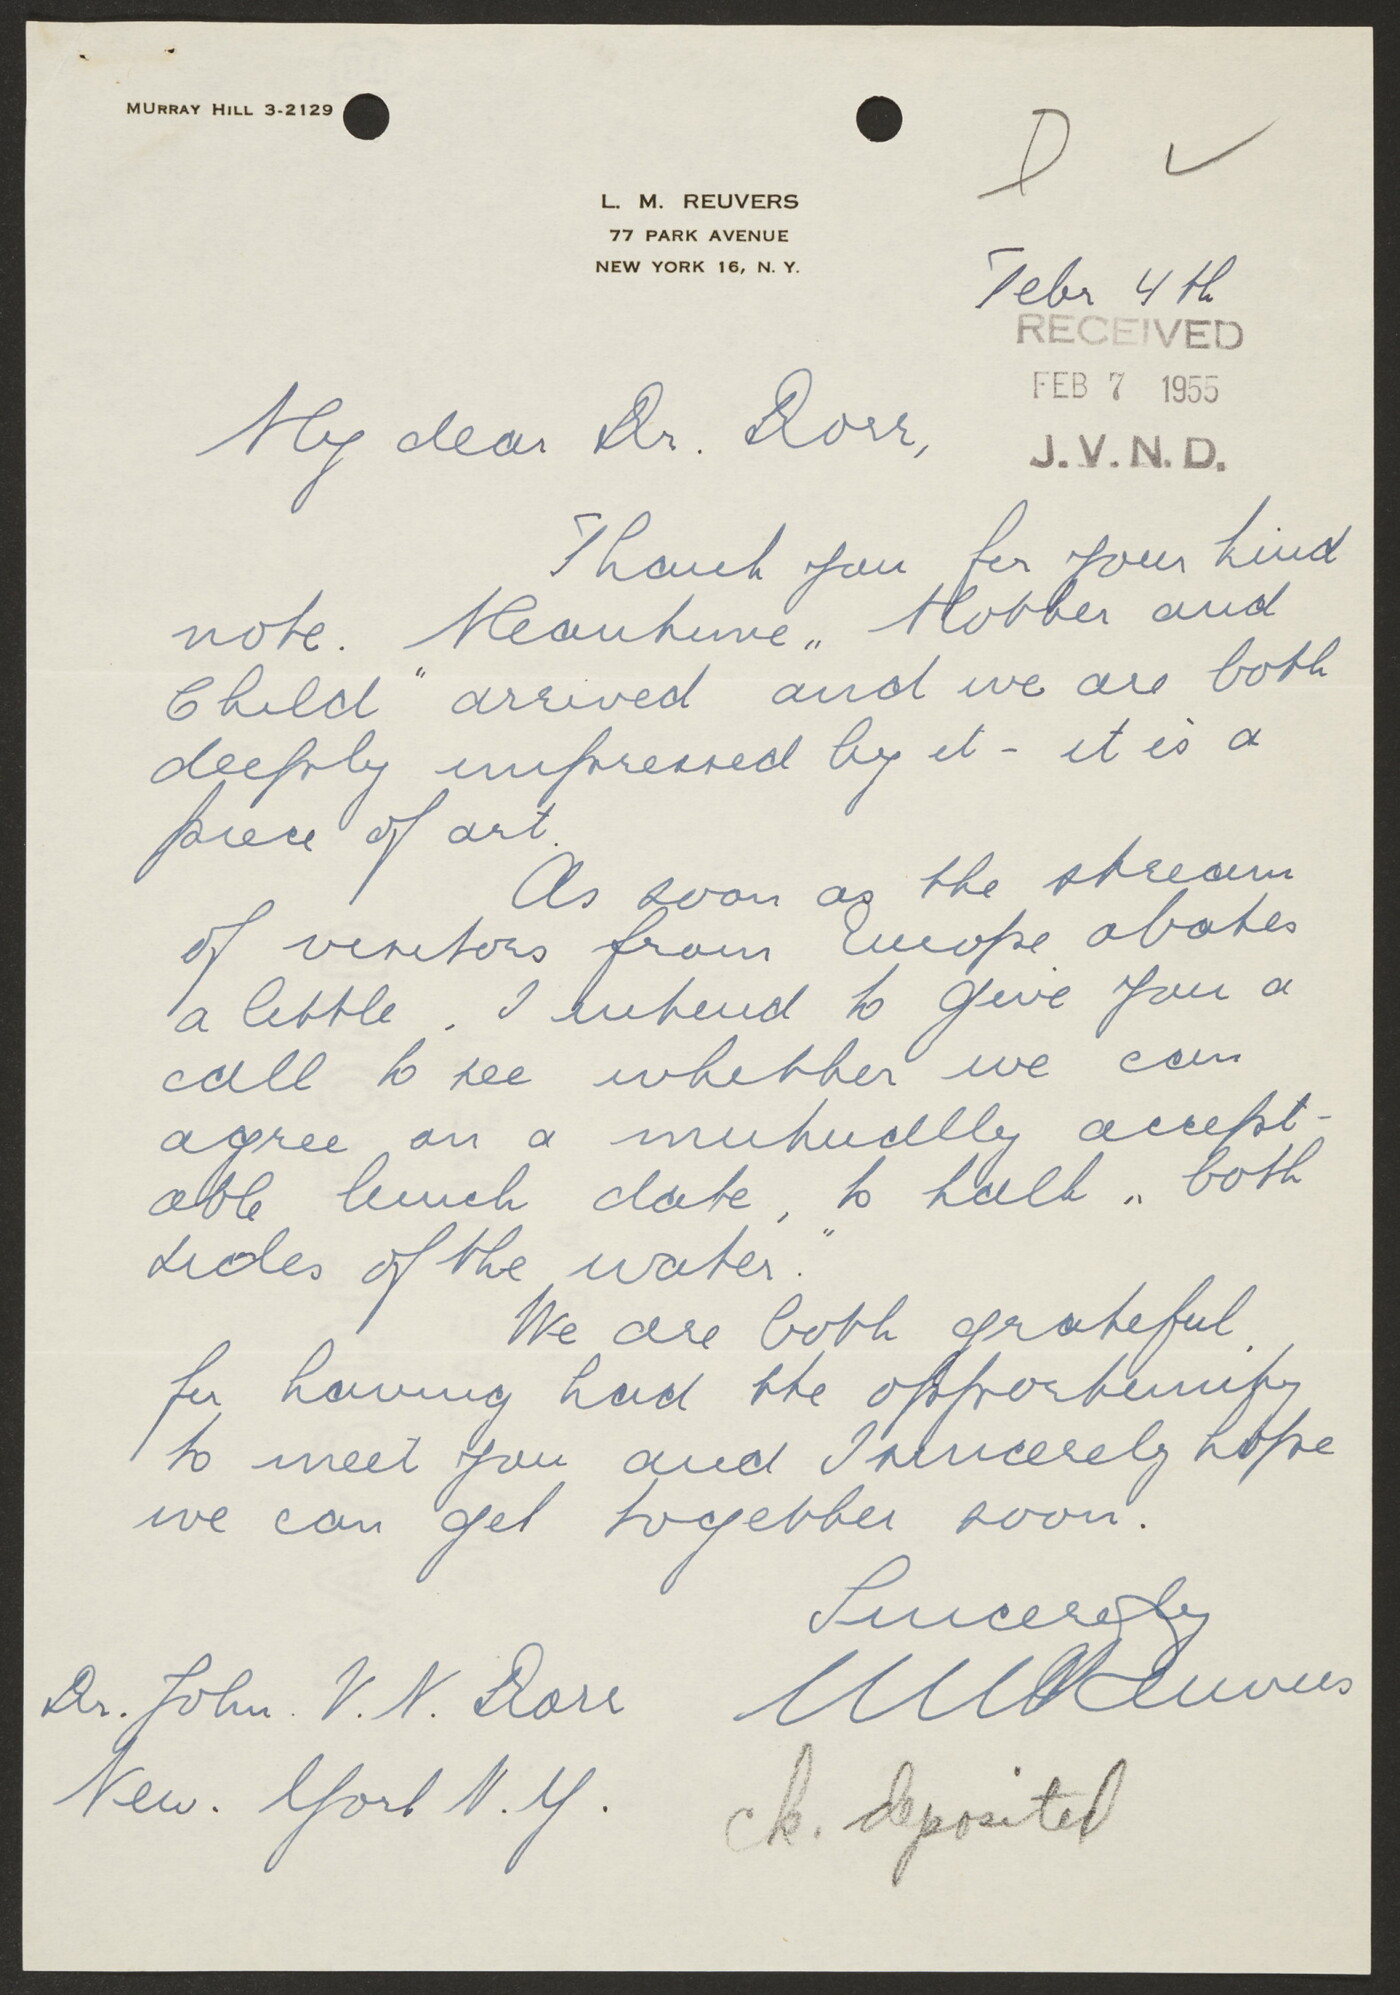 MURRAY HILL 3-2129
D ✓
L. M. REUVERS
77 PARK AVENUE
NEW YORK 16, N. Y.
Febr 4th
RECEIVED
FEB 7 1955
J.V.N.D.
My dear Dr. Dorr,
Thank you for your kind
note. Meantime „ Mother and
Child " arrived and we are both
deeply impressed by it - it is a
piece of art.
As soon as the stream
of visitors from Europe abates
a little, I intend to give you a
call to see whether we can
agree on a mutually accept-
able lunch date, to talk „ both
sides of the water."
We are both grateful
for having had the opportunity
to meet you and I sincerely hope
we can get together soon.
Sincerely
LMReuvers
Dr. John. V. N. Dorr
New. York N. Y.
ck. deposited